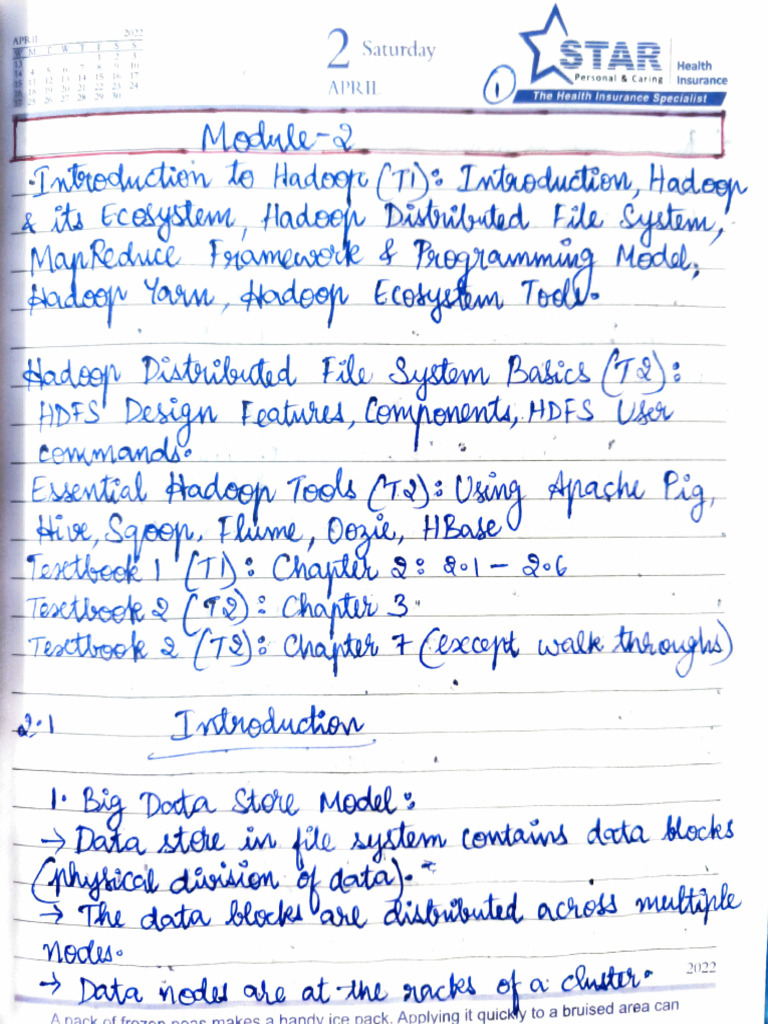 APRIL 2022
W M T W T F S S
13 1 2 3
14 4 5 6 7 8 9 10
15 11 12 13 14 15 16 17
16 18 19 20 21 22 23 24
17 25 26 27 28 29 30
2 Saturday
APRIL
STAR Health
Personal & Caring Insurance
The Health Insurance Specialist
1
Module-2
Introduction to Hadoop (T1): Introduction, Hadoop
& its Ecosystem, Hadoop Distributed File System,
MapReduce Framework & Programming Model,
Hadoop Yarn, Hadoop Ecosystem Tools.
Hadoop Distributed File System Basics (T2):
HDFS Design Features, Components, HDFS User
commands.
Essential Hadoop Tools (T2): Using Apache Pig,
Hive, Sqoop, Flume, Oozie, HBase
Textbook 1 (T1): Chapter 2: 2.1 - 2.6
Textbook 2 (T2): Chapter 3
Textbook 2 (T2): Chapter 7 (except walk throughs)
2.1 Introduction
1. Big Data Store Model:
→ Data store in file system contains data blocks
(physical division of data).
→ The data blocks are distributed across multiple
nodes.
→ Data nodes are at the racks of a cluster.
2022
A pack of frozen peas makes a handy ice pack. Applying it quickly to a bruised area can